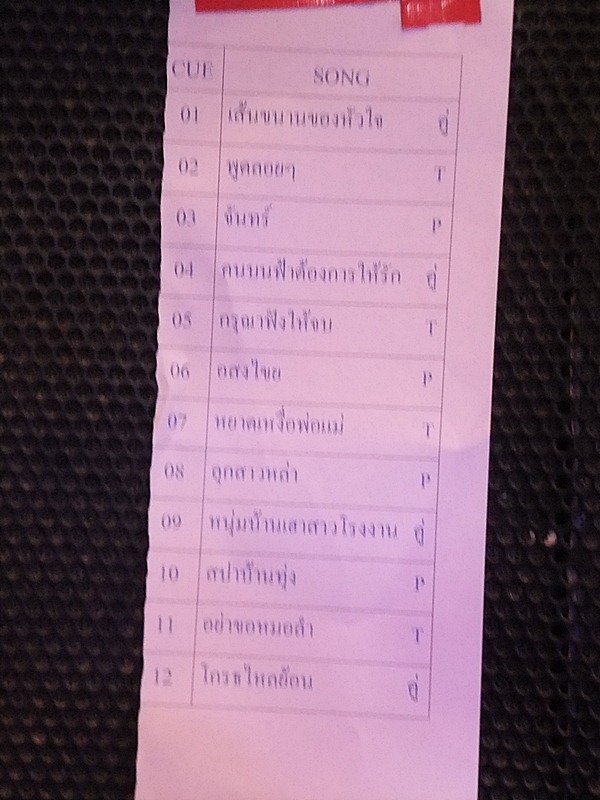 CUE SONG
01 เส้นขนานของหัวใจ คู่
02 พูดลอยๆ T
03 จันทร์ P
04 คนบนฟ้าต้องการให้รัก คู่
05 กรุณาฟังให้จบ T
06 อสงไขย P
07 หยาดเหงื่อพ่อแม่ T
08 ลูกสาวหล่า P
09 หนุ่มบ้านเฮาสาวโรงงาน คู่
10 สปาบ้านทุ่ง P
11 อย่าขอหมอลำ T
12 โกรธไหลย้อน คู่